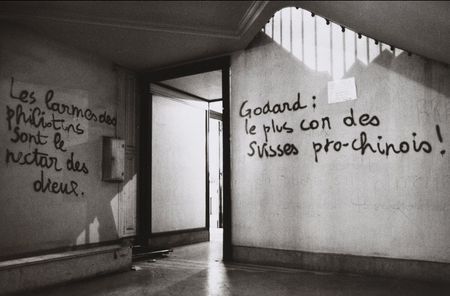 Les larmes des
philistins
sont le
nectar des
dieux.
Godard :
le plus con des
suisses pro-chinois !